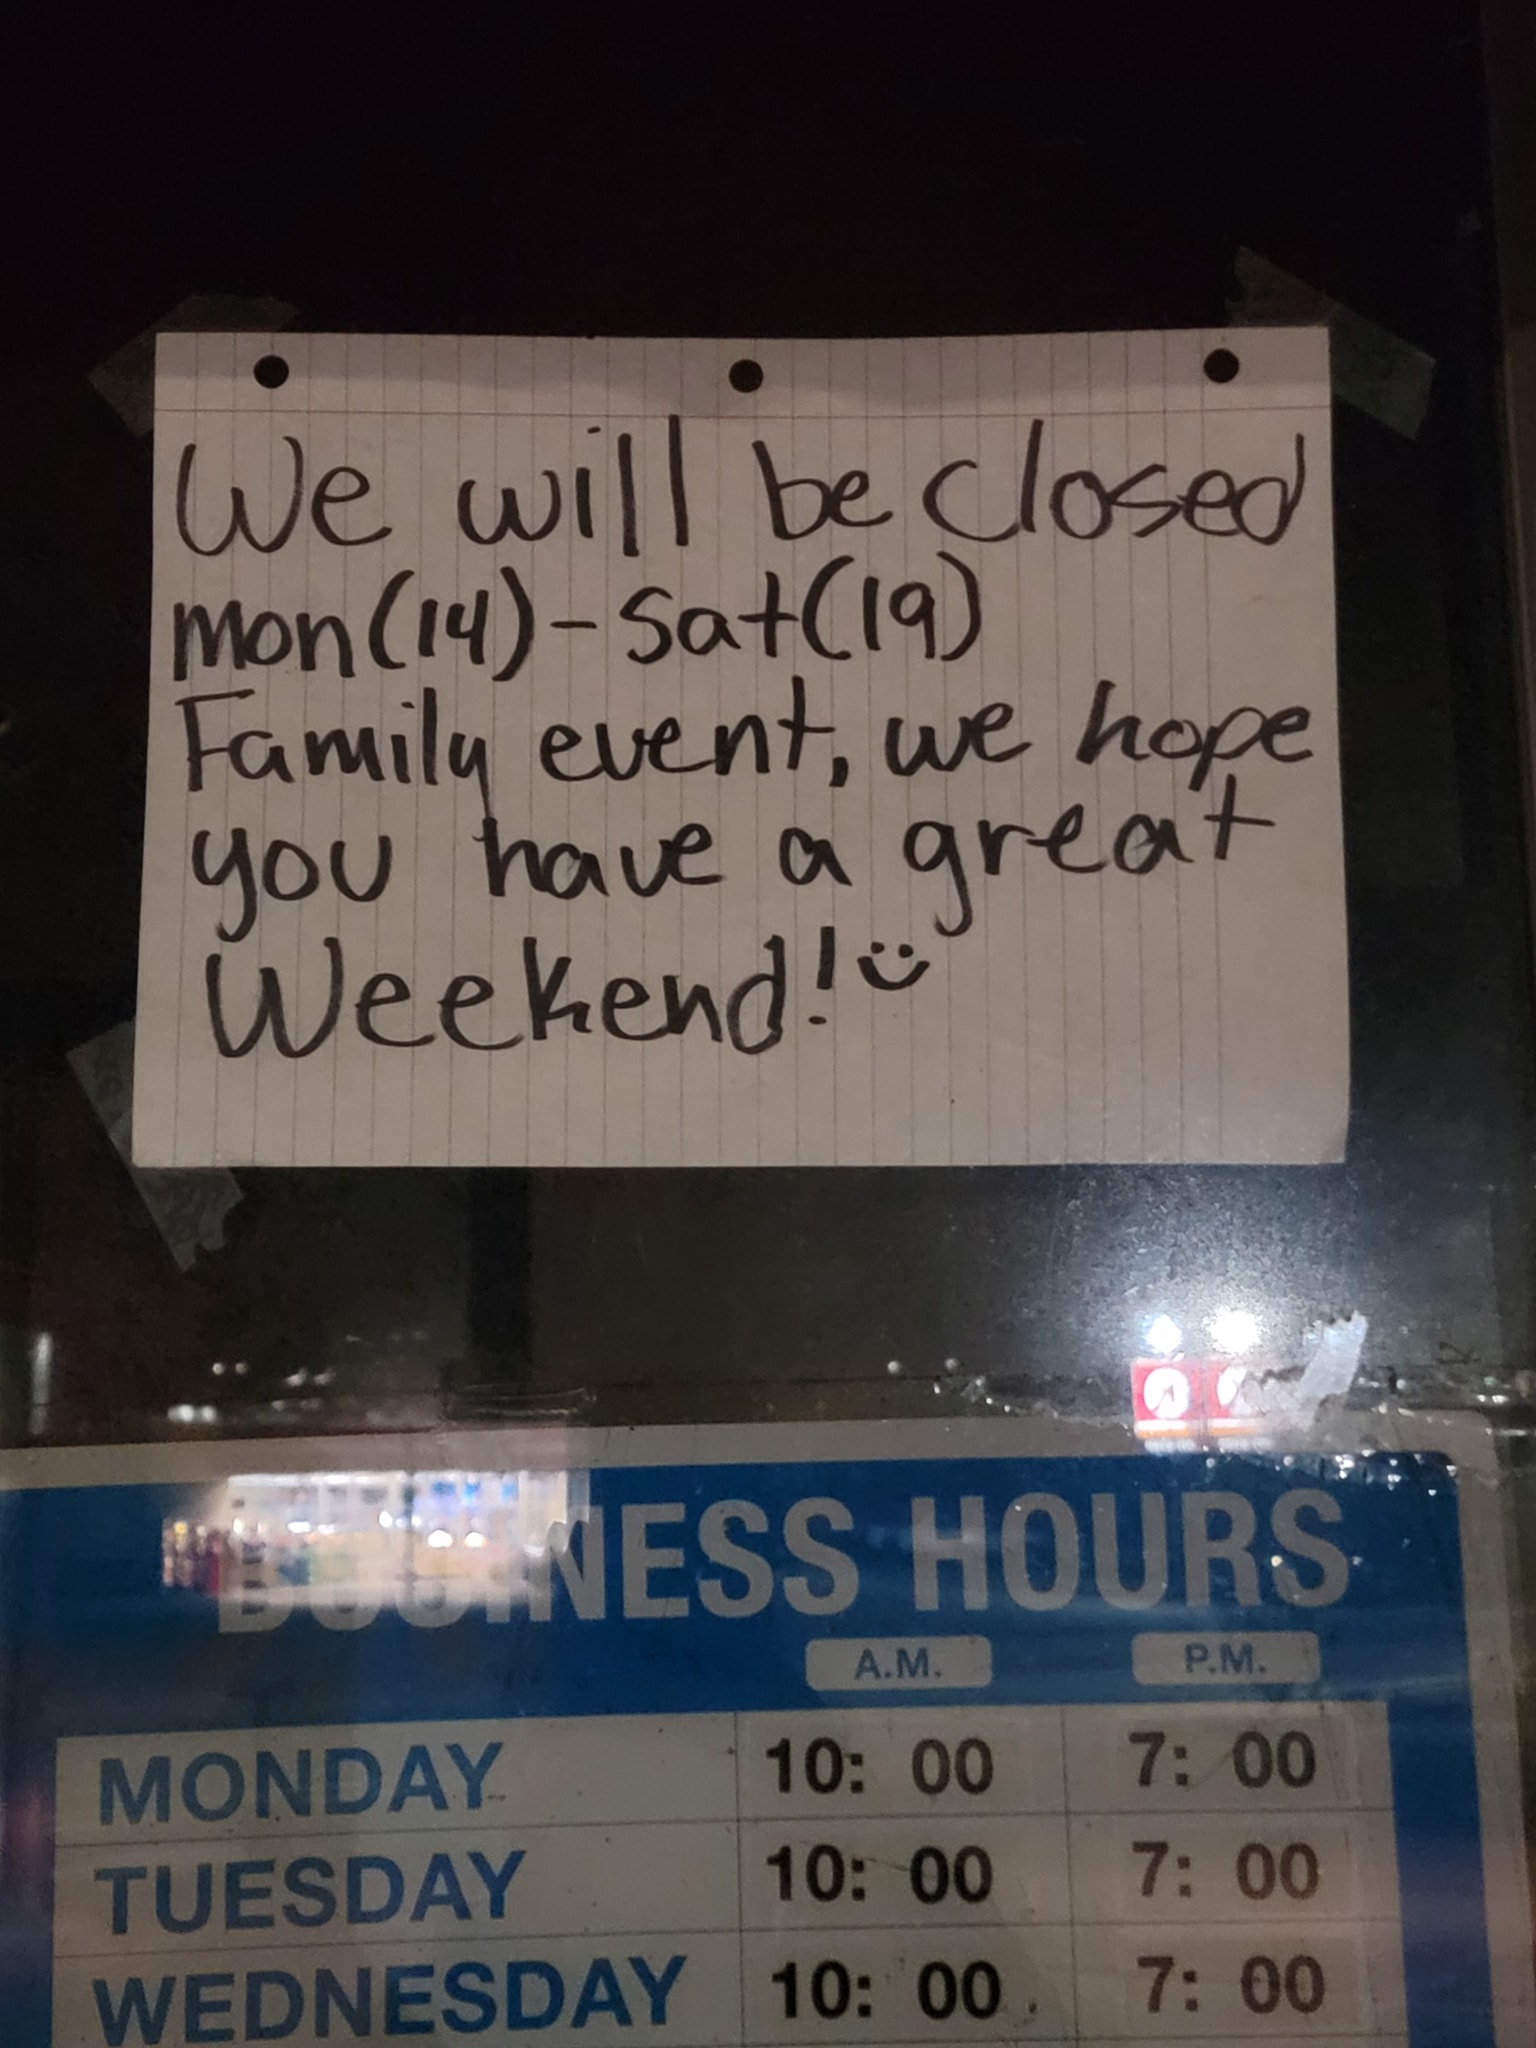 We will be closed
mon(14)-Sat(19)
Family event, we hope
you have a great
Weekend! :)
BUSINESS HOURS
A.M. P.M.
MONDAY 10: 00 7: 00
TUESDAY 10: 00 7: 00
WEDNESDAY 10: 00 7: 00